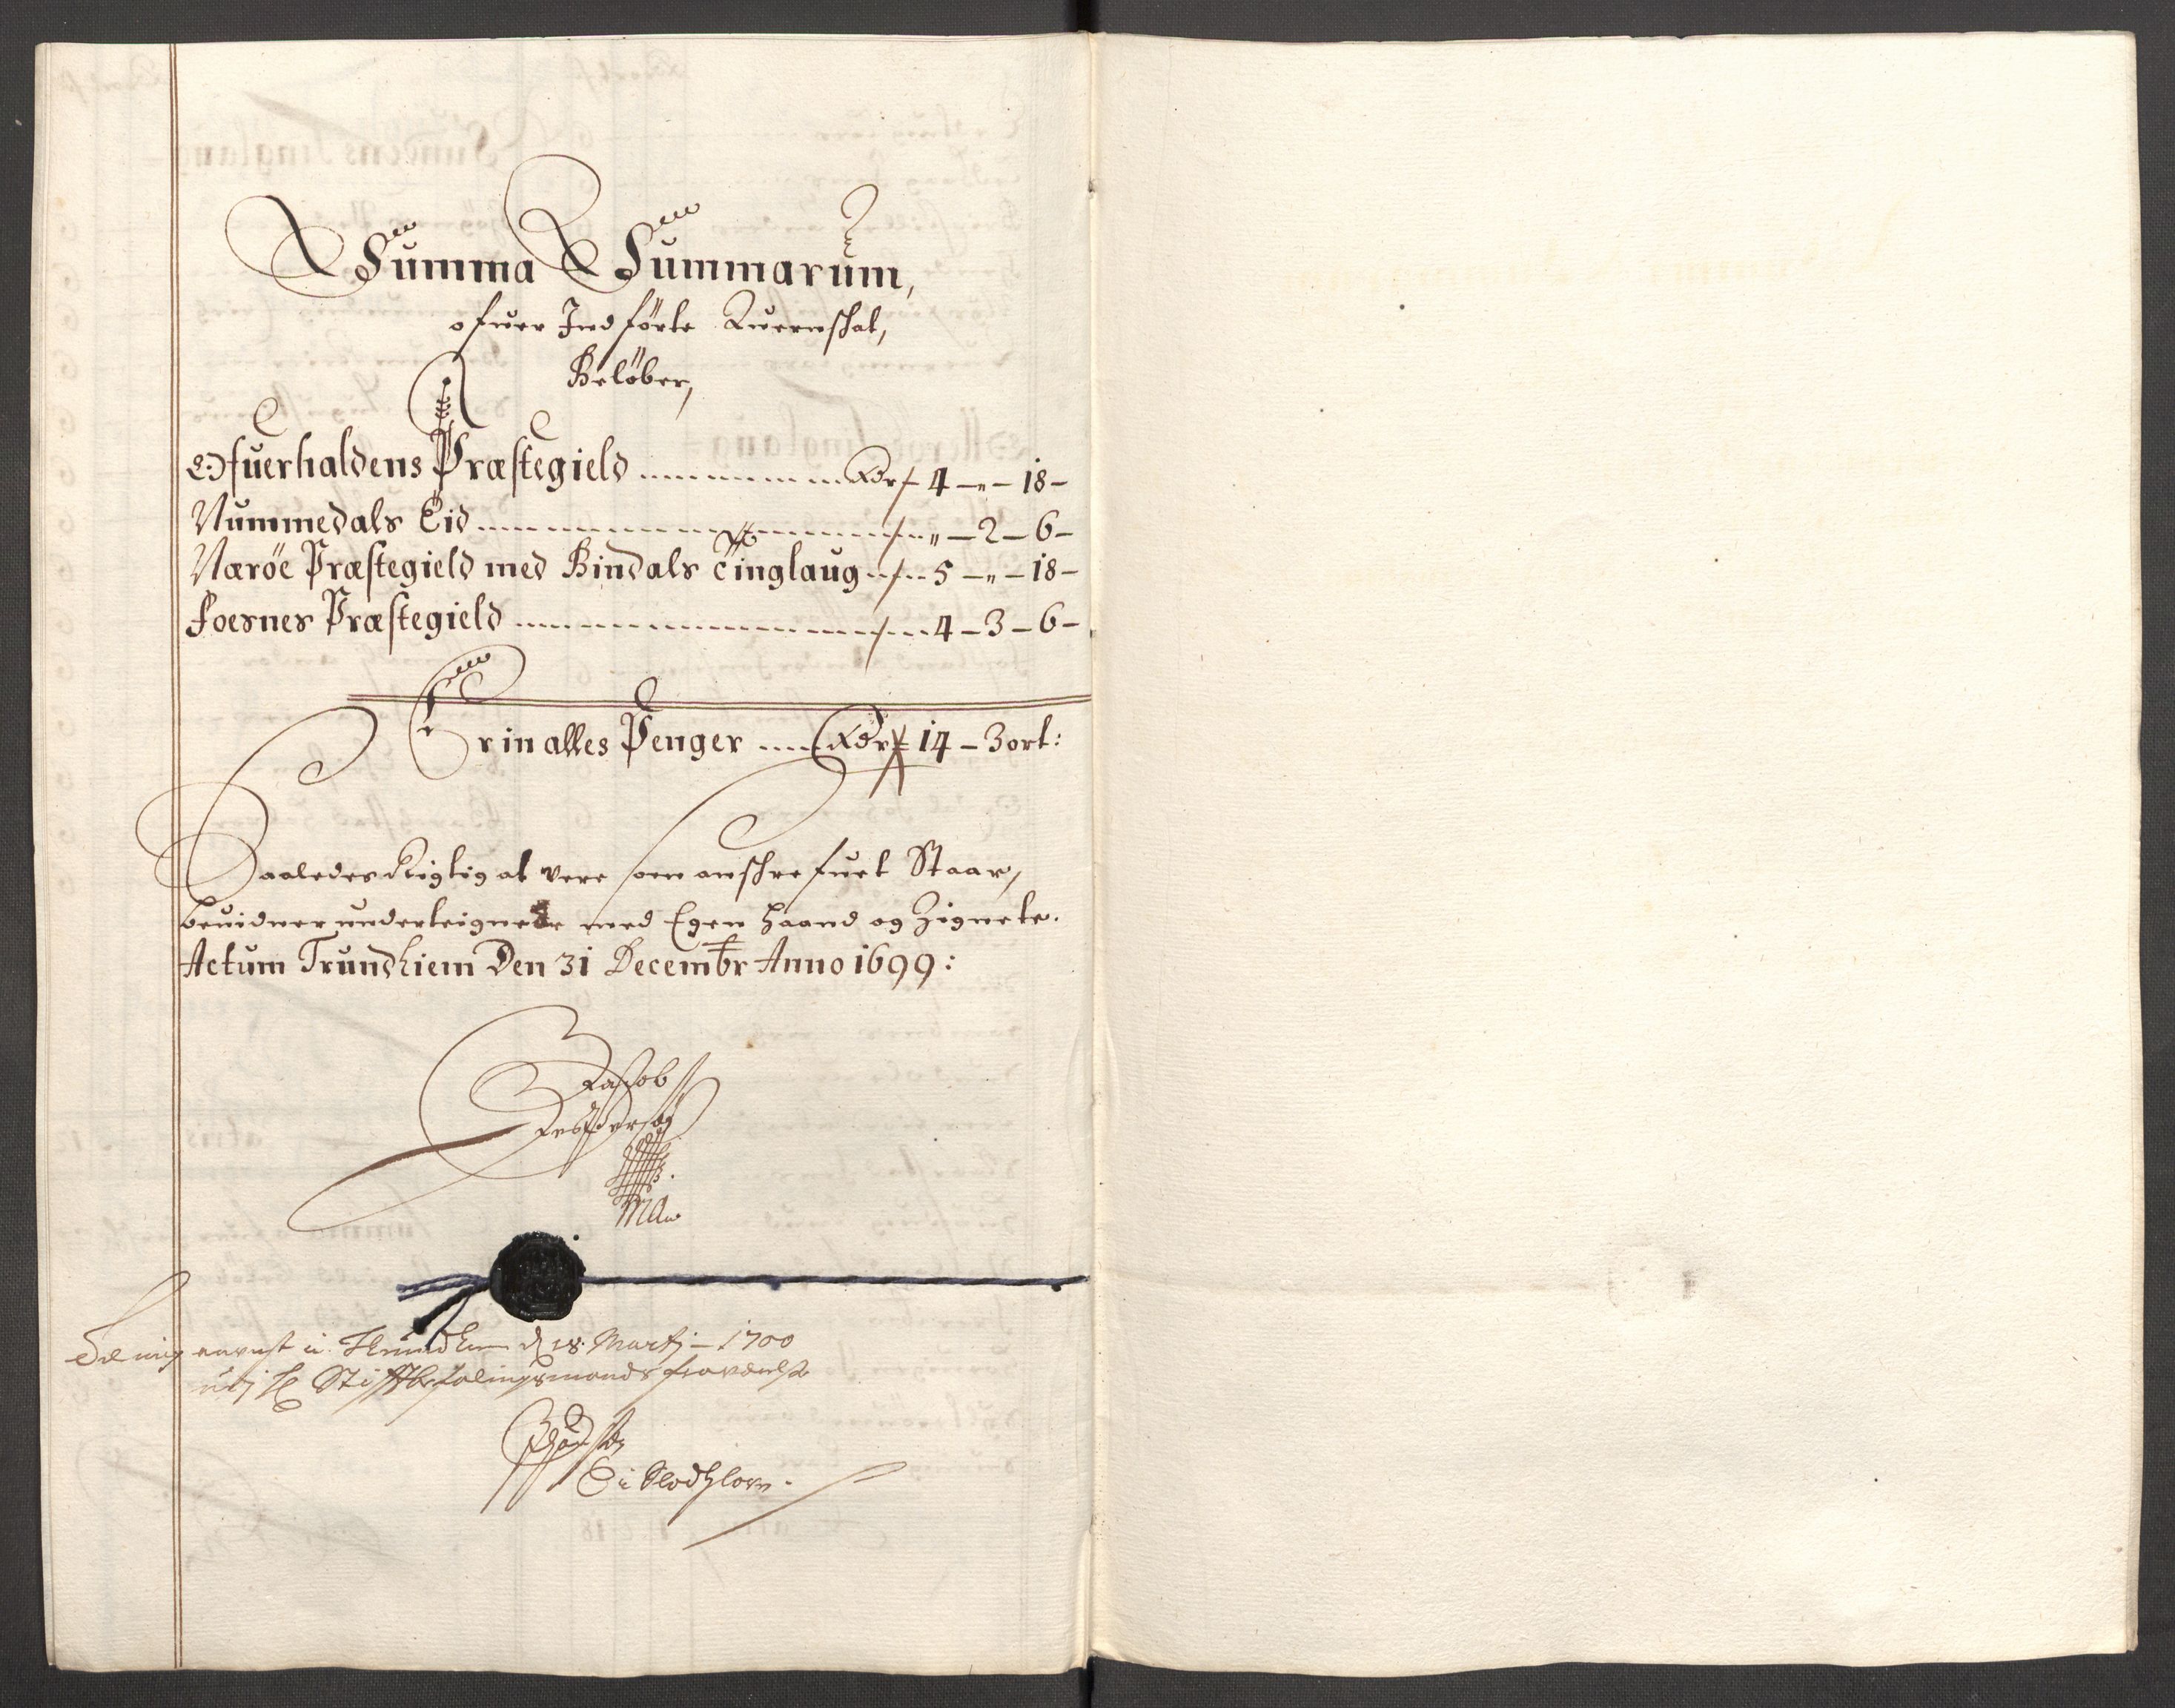 Summa Summarum,
ofuer Indførte Quernschat,
Beløber,
Ofuerhaldens Præstegield ........ Rdr 4 - " - 18 -
Nummedals Eid ........ " - 2 - 6 -
Nærøe Præstegield med Bindals Tinglaug .. 5 - " - 18 -
Foesnes Præstegield ........ 4 - 3 - 6 -
Er in alles Penger .... Rdr 14 - 3 ort:
Saaledes Rigtig at vere som anschrefuet Staar,
beuidner underteignede med Egen Haand og Zignete.
Actum Trundhiem Den 31 Decembr Anno 1699:
mau
anuist i Trundhiem d 18: Martj - 1700
udj Stifftbefalingsmands frauærelse